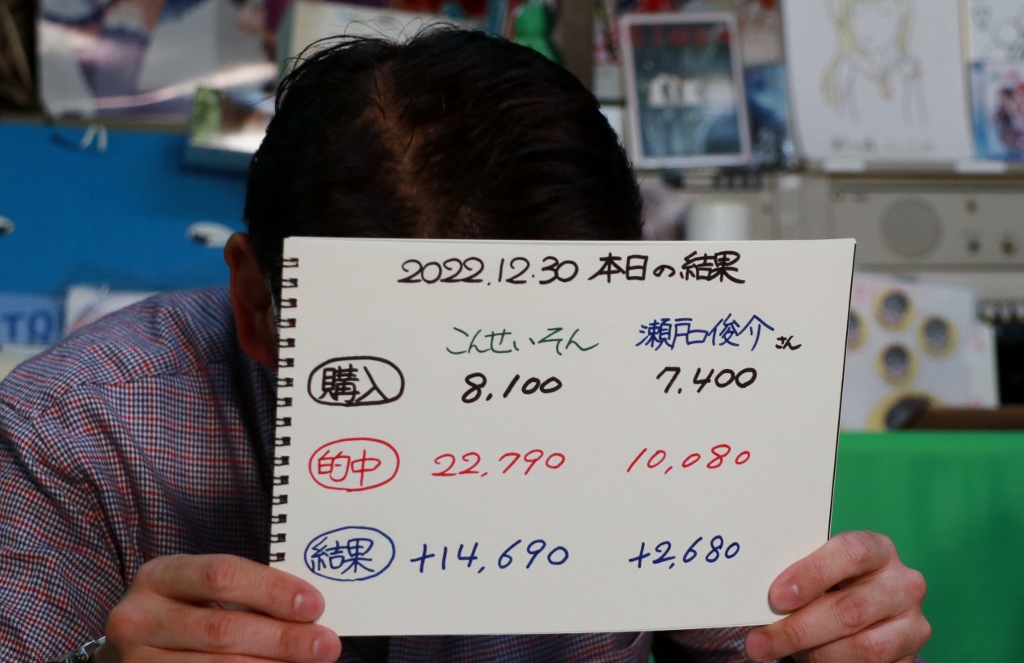 2022.12.30 本日の結果
こんせいそん 瀬戸口俊介さん
購入 8,100 7,400
的中 22,790 10,080
結果 +14,690 +2,680